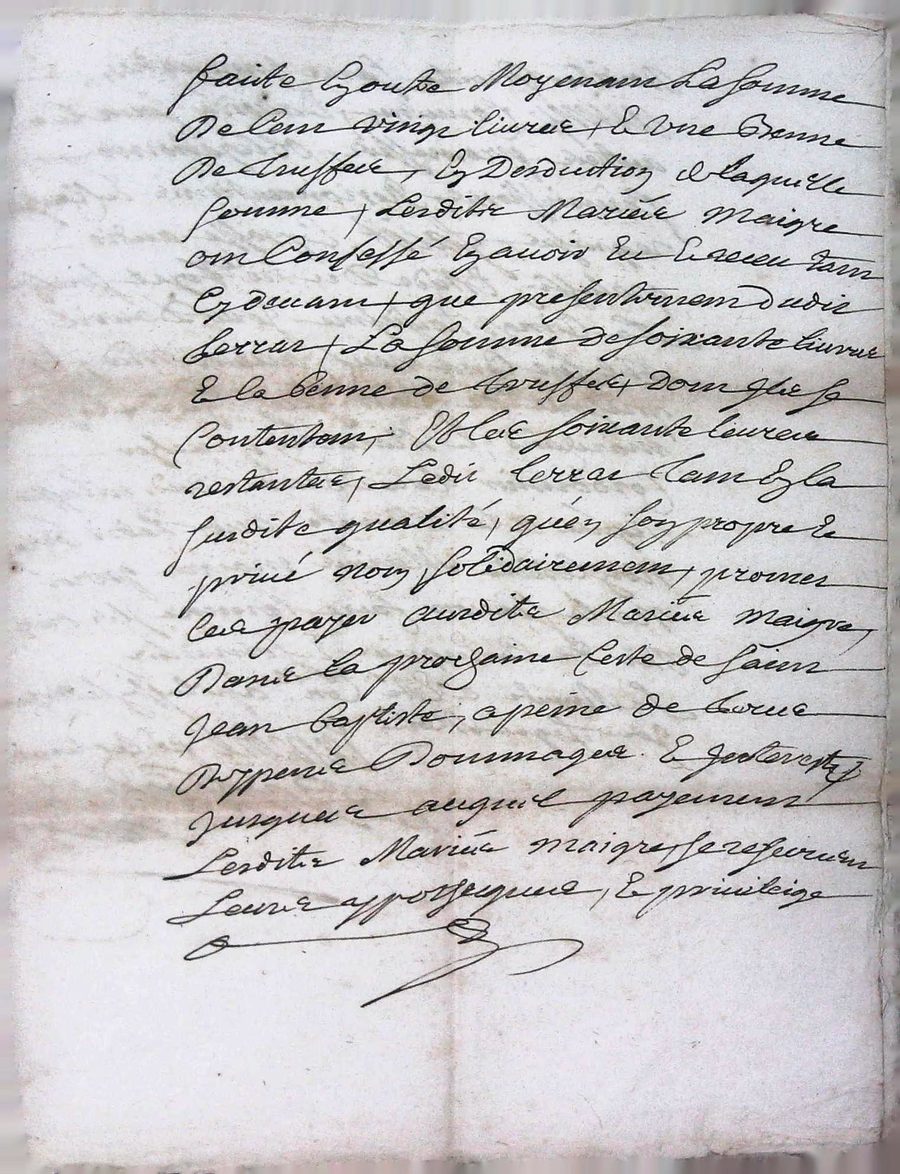 faitte Ez outre Moyenam La somme
De Cem vingt livres, Et vne Benne
De truffes, Ez Desduction de laquelle
somme, Lesdits Mariés maigre
om Confessé Ez avoir Eu Et receu tam
Cy devam, que presentemem dudit
serrar, La somme de soixante livres
Et la benne de truffes, Dom Ils se
Contentom, Et les soixante livres
restantes, Ledit serrar tam Ez la
susdite qualité, qu'en soy propre Et
privé nom solidairemem, promet
les payer ausdits Mariés maigre,
Dans la prochaine feste de sainct
Jean baptiste, a peine de tous
Despens Dommages Et Interests
Jusques auquel payemem
Lesdits Mariés maigre se reservem
Leurs yppotheques, Et privileige